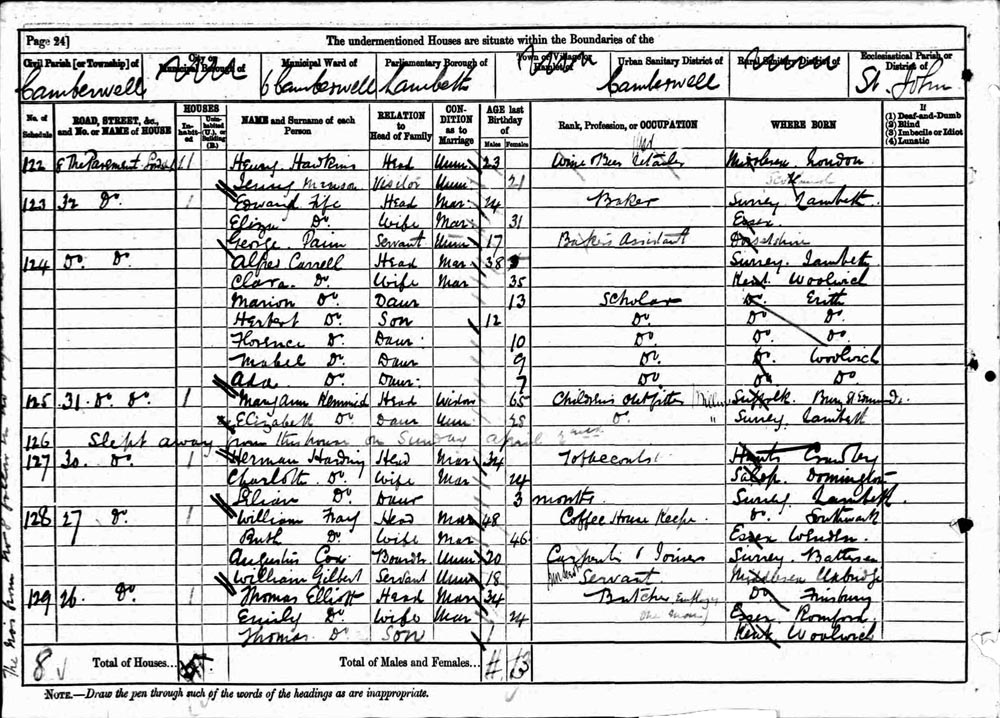 Page 24]
The undermentioned Houses are situate within the Boundaries of the
Civil Parish [or Township] of
Municipal Borough of
Municipal Ward of
Parliamentary Borough of
Town or Village or Hamlet of
Urban Sanitary District of
Rural Sanitary District of
Ecclesiastical Parish or District of
Camberwell
Camberwell
Lambeth
Camberwell
St. John
No. of Schedule
ROAD, STREET, &c., and No. or NAME of HOUSE
HOUSES
Inhabited
Uninhabited (U.), or Building (B.)
NAME and Surname of each Person
RELATION to Head of Family
CONDITION as to Marriage
AGE last Birthday of
Males
Females
Rank, Profession, or OCCUPATION
WHERE BORN
If
(1) Deaf-and-Dumb
(2) Blind
(3) Imbecile or Idiot
(4) Lunatic
122 8 The Pavement 1 Henry Hawkins Head Unm 23 Wine & Beer Retailer Middlesex London
Jenny Visitor Unm 21 Scotland
123 32 Do. 1 Edward Fife Head Mar 24 Baker Surrey Lambeth
Eliza Do. Wife Mar 31 Essex
George Servant Unm 17 Bakers Assistant Dorsetshire
124 Do. Do. Alfred Carrell Head Mar 38 Surrey Lambeth
Clara Do. Wife Mar 35 Kent Woolwich
Marion Do. Daur 13 Scholar Do. Erith
Herbert Do. Son 12 Do. Do. Do.
Florence Do. Daur 10 Do. Do. Do.
Mabel Do. Daur 9 Do. Do. Woolwich
Ada Do. Daur 7 Do. Do. Do.
125 31 Do. Do. 1 Mary Ann Head Widow 65 Childrens Outfitter Suffolk Bury St Edmunds
Elizabeth Do. Daur Unm 25 Do. Surrey Lambeth
126 Slept away from this house on Sunday April
127 30 Do. 1 Herman Harding Head Mar 34 Tobacconist Hants
Charlotte Do. Wife Mar 24 Salop
Lilian Do. Daur 3 months Surrey Lambeth
128 27 Do. 1 William Head Mar 48 Coffee House Keeper Do. Southwark
Ruth Do. Wife Mar 46 Essex
Augustin Cox Boarder Unm 20 Carpenter & Joiner Surrey Battersea
William Gilbert Servant Unm 18 Servant Middlesex Uxbridge
129 26 Do. 1 Thomas Elliott Head Mar 34 Butcher Do. Finsbury
Emily Do. Wife Mar 24 Essex Romford
Thomas Do. Son 1 Kent Woolwich
8 Total of Houses...
Total of Males and Females... 11 13
NOTE.—Draw the pen through such of the words of the headings as are inappropriate.